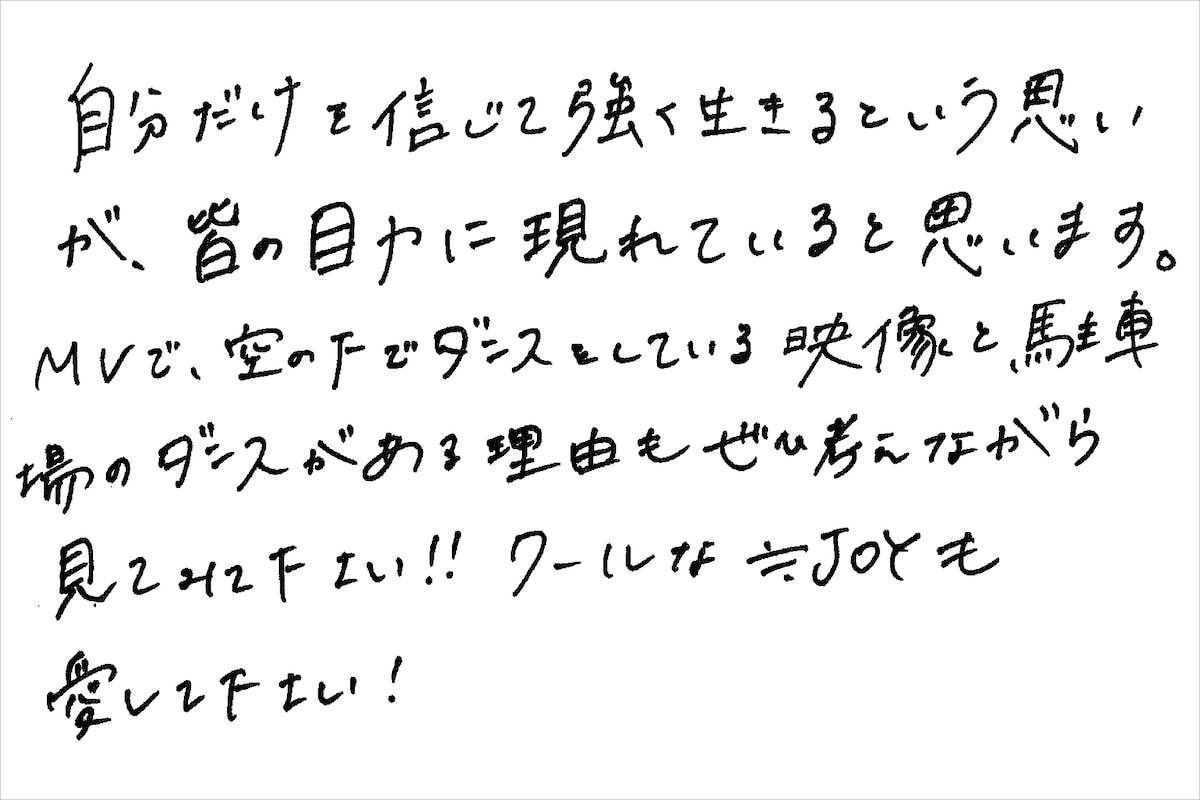 自分だけを信じて強く生きるという思い
が、皆の目力に現れていると思います。
MVで、空の下でダンスをしている映像と、駐車
場のダンスがある理由もぜひ考えながら
見てみて下さい!! クールな ≒JOYも
愛して下さい!